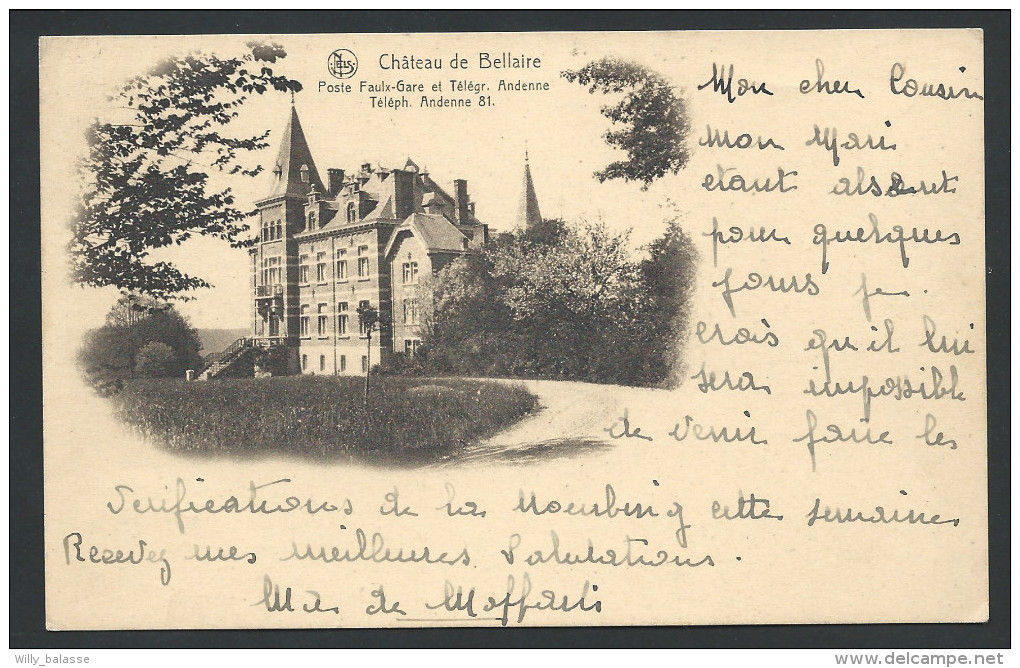 NELS
Château de Bellaire
Poste Faulx-Gare et Télégr. Andenne
Téléph. Andenne 81.
Mon cher Cousin
mon Mari
étant absent
pour quelques
jours je
crois qu'il lui
sera impossible
de venir faire les
Vérifications de la cette semaine
Recevez mes meilleures Salutations.
de
Willy_balasse
http://www.delcampe.net